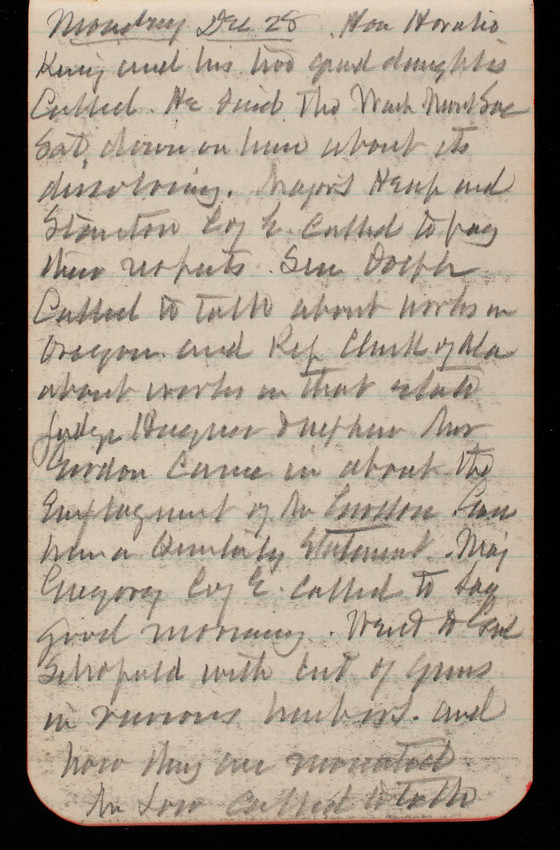 Monday Dec 28 Hon Horatio
King and his two grand daughters
Called. He said the Wash Monmt Soc
Sat down on him about its
dissolving. Majors Heap and
Stanton Cof E. called to pay
their respects. Sen Dolph
Called to talk about works in
Oregon. and Rep Clark of Ala
about works in that state
Judge nephew Mr
Gurdon came in about the
Employment of Mr Gurdon Gave
him a Statement. Maj
Gregory Cof E. called to say
good morning. Went to Genl
Schofield with list of guns
in various harbors. and
how they are mounted
Mr Low called to talk